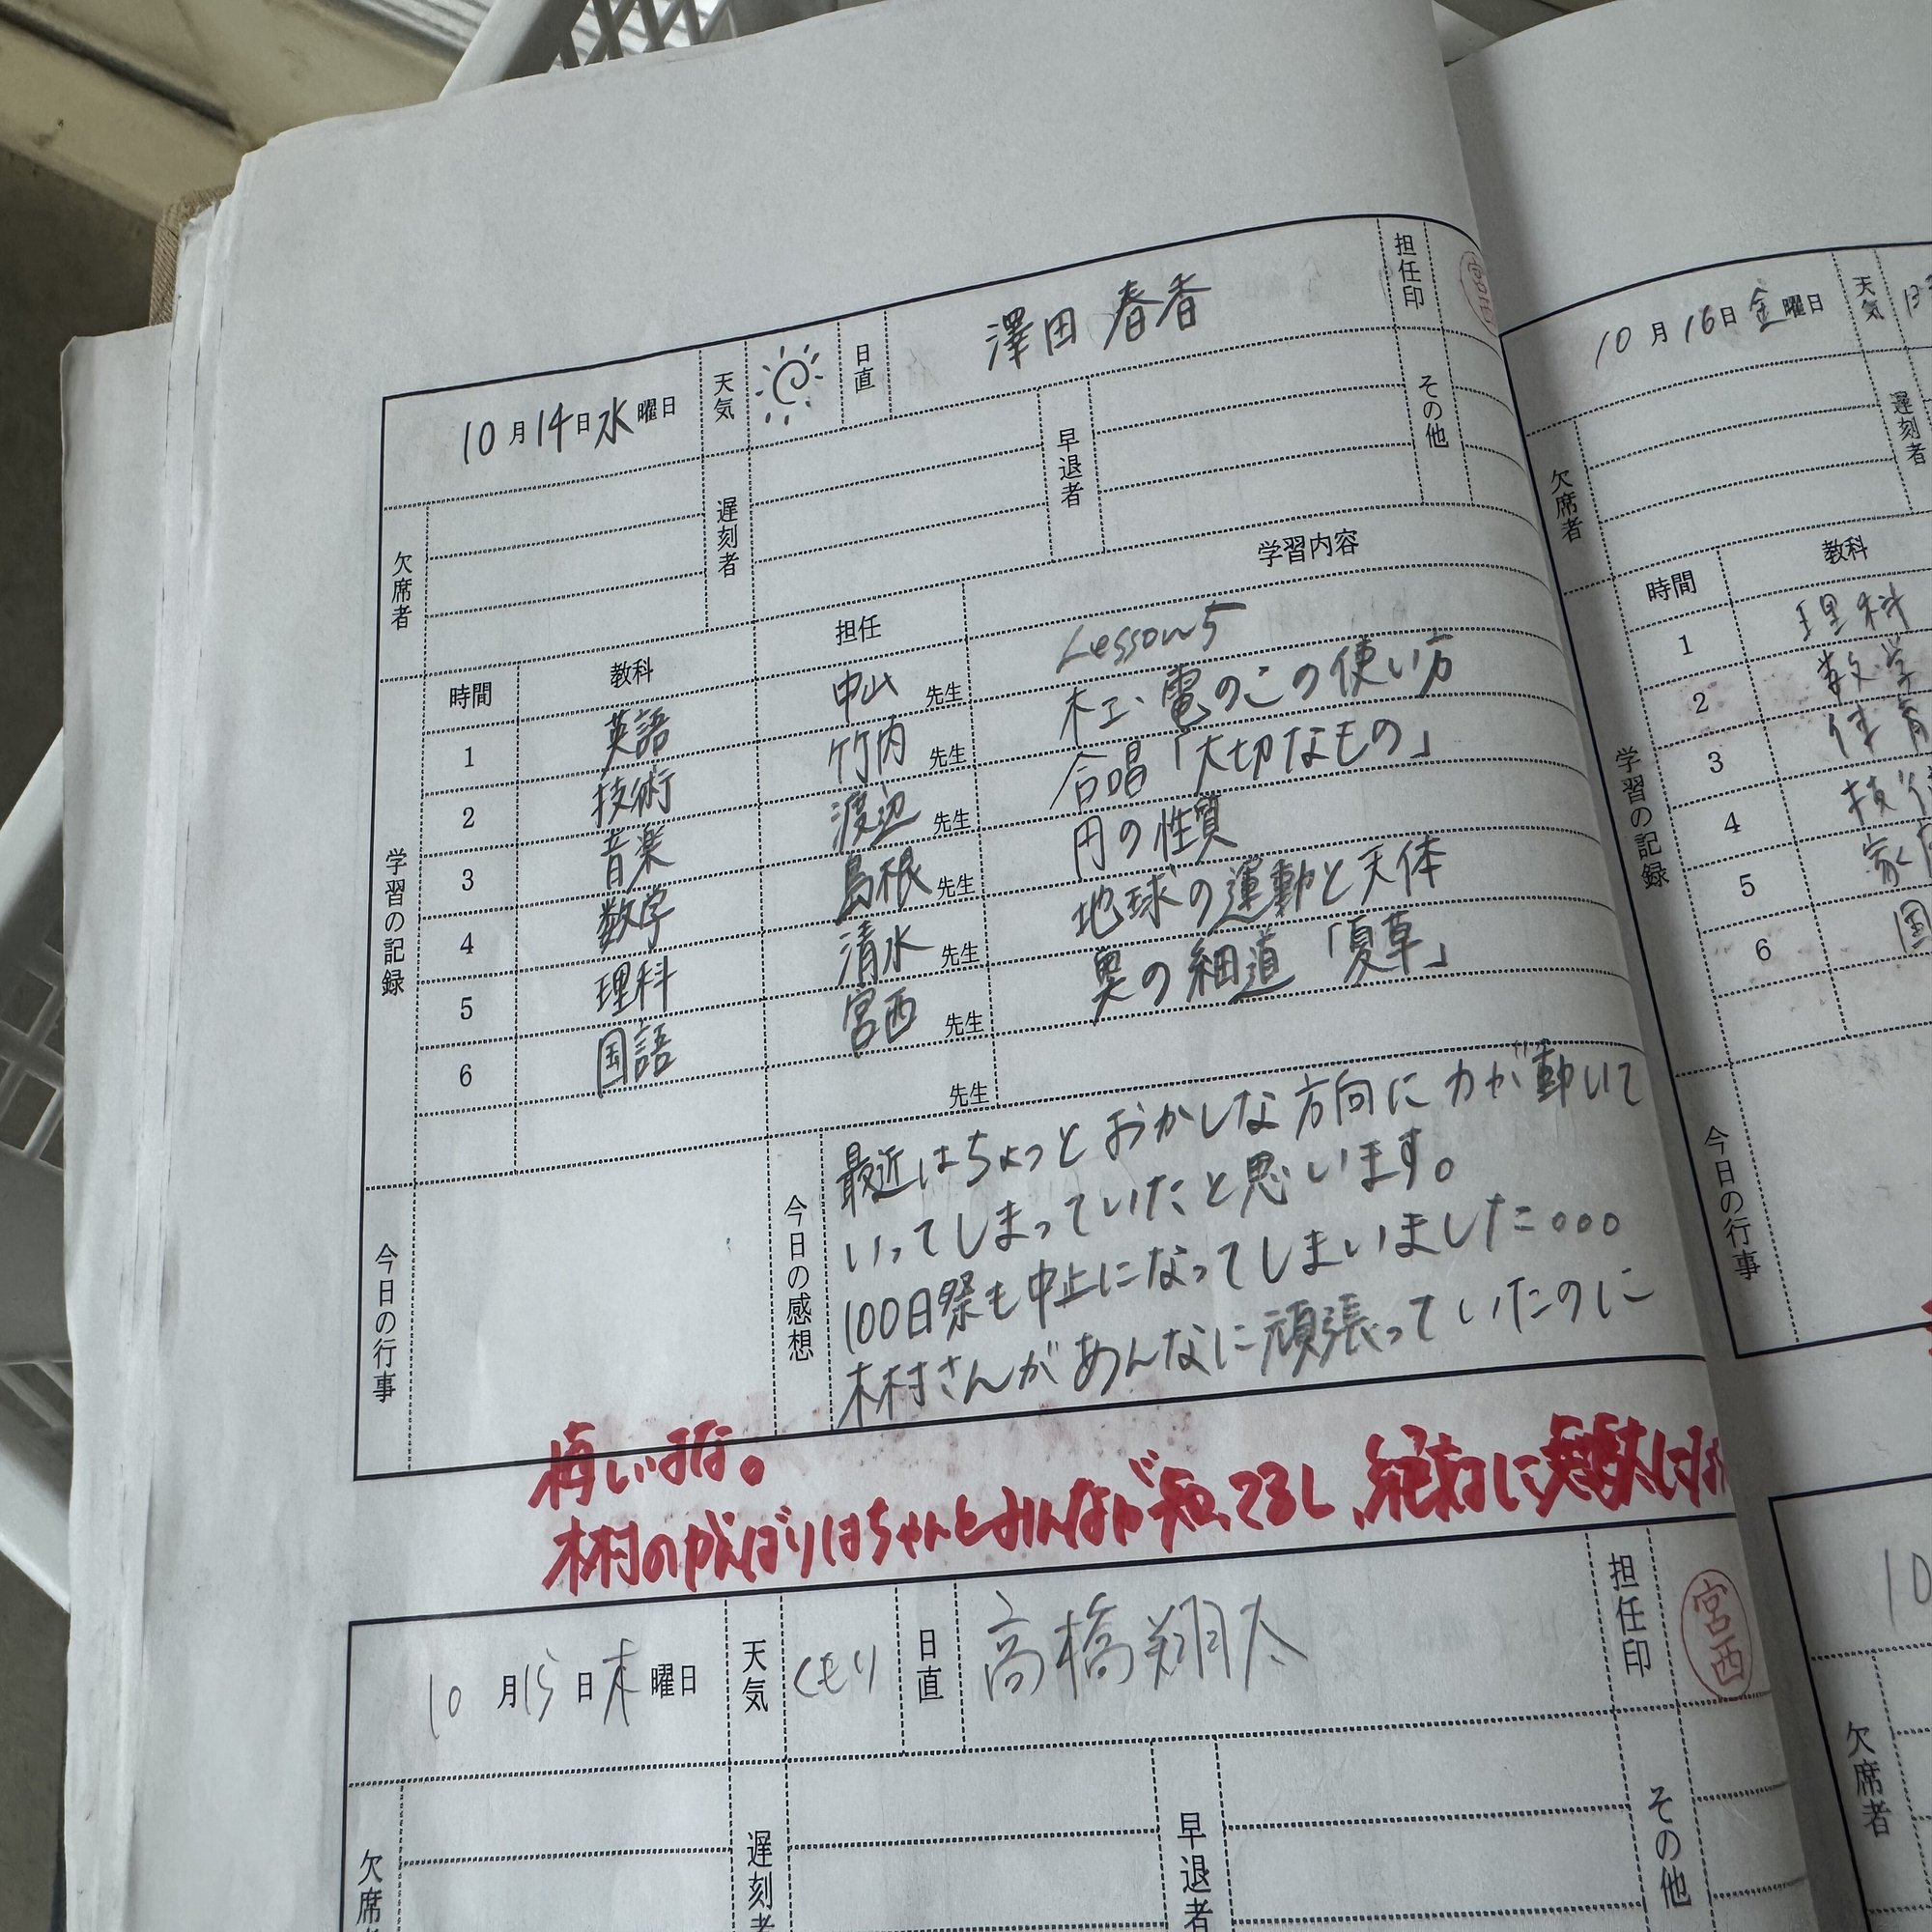 10月14日水曜日 天気 日直 澤田 春香 担任印
欠席者 遅刻者 早退者 その他
学習の記録
時間 教科 担任 学習内容
1 英語 中山先生 Lesson5
2 技術 竹内先生 木工・電のこの使い方
3 音楽 渡辺先生 合唱「大切なもの」
4 数学 島根先生 円の性質
5 理科 清水先生 地球の運動と天体
6 国語 宮西先生 奥の細道「夏草」
先生
今日の行事
今日の感想
最近はちょっとおかしな方向に力が動いて
いってしまっていたと思います。
100日祭も中止になってしまいました。。。
木村さんがあんなに頑張っていたのに
木村のがんばりはちゃんとみんなが知ってるし、絶対に
10月15日木曜日 天気 くもり 日直 高橋翔太 担任印 宮西
欠席 遅刻者 早退者 その他
10月16日金曜日 天気
欠席者 遅刻者
学習の記録
時間 教科
1 理科
2 数学
3 体育
4
5
6 国
今日の行事
10
欠席者